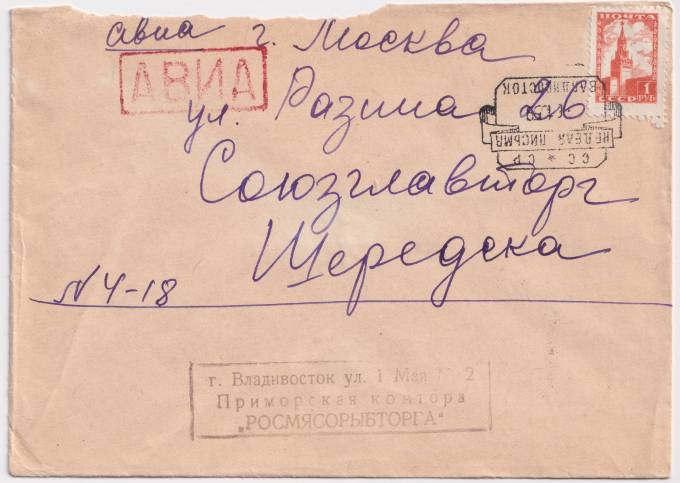 авиа г. Москва
АВИА
ул. Разина 26
Союзглавторг
Щередска
N 4-18
ПОЧТА
1 РУБ
СССР
ВЛАДИВОСТОК
НЕДЕЛЯ ПИСЬМА
СССР
г. Владивосток ул. 1 Мая № 2
Приморская контора
„РОСМЯСОРЫБТОРГА“